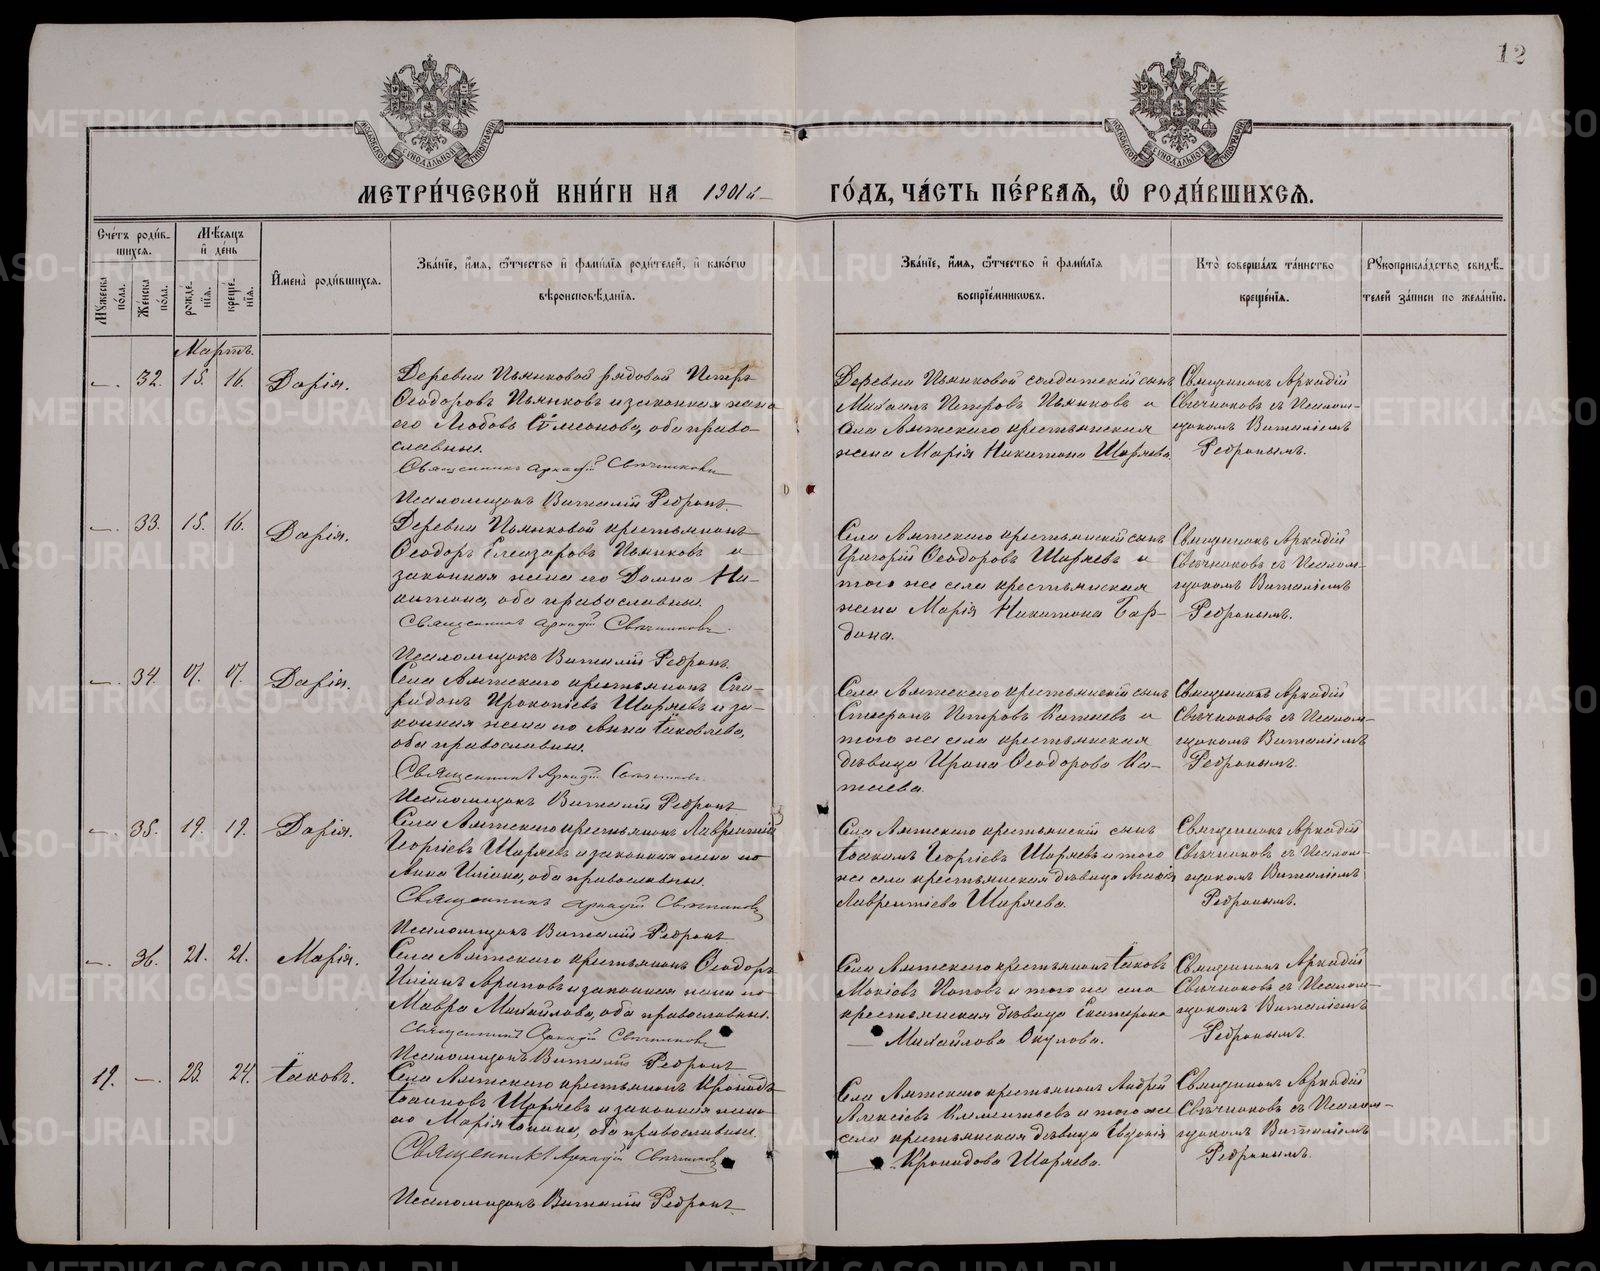 12
МЕТРИ́ЧЕСКОЙ КНИ́ГИ НА 1901й ГО́ДЪ, ЧА́СТЬ ПЕ́РВАЯ, Ѽ РОДИ́ВШИХСЯ.
Сче́тъ роди́в-
шихся.
Мужеска по́ла.
Же́нска по́ла.
Мѣсяцъ
и де́нь
рожде́-
нїя.
креще́-
нїя.
Имена̀ роди́вшихся.
Зва́нїе, и́мя, ѻ́тчество и фами́лїя роди́телей, и како́гѡ
вѣроисповѣ́данїя.
Зва́нїе, и́мя, ѻ́тчество и фами́лїя
воспрїе́мникѡвъ.
Кто̀ соверша́лъ та́инство
креще́нїя.
Рукоприкла́дство свидѣ́-
телей за́писи по жела́нїю.
Мартъ.
—. 32. 15. 16. Дарія.
Деревни Пьянковой рядовой Петръ
Ѳеодоровъ Пьянковъ и законная жена
его Любовь Сѵмеонова, оба право-
славные.
Священникъ Аркадій Свѣчниковъ
Псаломщикъ Виталій
Деревни Пьянковой солдатскій сынъ
Михаилъ Петровъ Пьянковъ и
села Аятскаго крестьянская
жена Марія Никитина Ширяева.
Священникъ Аркадій
Свѣчниковъ съ Псалом-
щикомъ Виталіемъ
—. 33. 15. 16. Дарія.
Деревни Пьянковой крестьянинъ
Ѳеодоръ Елеазаровъ Пьянковъ и
законная жена его Домна Ни-
китина, оба православные.
Священникъ Аркадій Свѣчниковъ.
Псаломщикъ Виталій
Села Аятскаго крестьянскій сынъ
Григорій Ѳеодоровъ Ширяевъ и
того же села крестьянская
жена Марія Никитина Бар-
дина.
Священникъ Аркадій
Свѣчниковъ съ Псалом-
щикомъ Виталіемъ
—. 34. 17. 17. Дарія.
Села Аятскаго крестьянинъ Спи-
ридонъ Прокопіевъ Ширяевъ и за-
конная жена его Анна Іаковлева,
оба православные.
Священникъ Аркадій Свѣчниковъ.
Псаломщикъ Виталій
Села Аятскаго крестьянскій сынъ
Стефанъ Петровъ Катаевъ и
того же села крестьянская
дѣвица Ирина Ѳеодорова Ка-
таева.
Священникъ Аркадій
Свѣчниковъ съ Псалом-
щикомъ Виталіемъ
—. 35. 19. 19. Дарія.
Села Аятскаго крестьянинъ Лаврентій
Георгіевъ Ширяевъ и законная жена его
Анна Иліина, оба православные.
Священникъ Аркадій Свѣчниковъ
Псаломщикъ Виталій
Села Аятскаго крестьянскій сынъ
Іоакимъ Георгіевъ Ширяевъ и того
же села крестьянская дѣвица
Лаврентіева Ширяева.
Священникъ Аркадій
Свѣчниковъ съ Псалом-
щикомъ Виталіемъ
—. 36. 21. 21. Марія.
Села Аятскаго крестьянинъ Ѳеодоръ
Иліинъ Араповъ и законная жена его
Мавра Михайлова, оба православные.
Священникъ Аркадій Свѣчниковъ
Псаломщикъ Виталій
Села Аятскаго крестьянинъ Іаковъ
Мокіевъ Поповъ и того же села
крестьянская дѣвица Екатерина
Михайлова Окулова.
Священникъ Аркадій
Свѣчниковъ съ Псалом-
щикомъ Виталіемъ
19. —. 23. 24. Іаковъ.
Села Аятскаго крестьянинъ Кронидъ
Іоанновъ Ширяевъ и законная жена
его Марія Іоанова, оба православные.
Священникъ Аркадій Свѣчниковъ
Псаломщикъ Виталій
Села Аятскаго крестьянинъ Андрей
Алексіевъ Климентьевъ и того же
села крестьянская дѣвица Евдокія
Кронидова Ширяева.
Священникъ Аркадій
Свѣчниковъ съ Псалом-
щикомъ Виталіемъ
METRIKI.GASO-URAL.RU